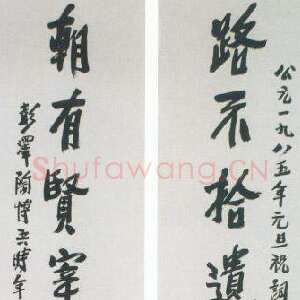 公元一九八五年元旦祝詞
路不拾遺
朝有賢宰
彭澤陶博吾時年
Shufawang.CN